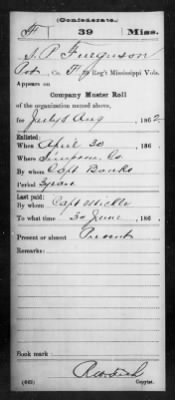 (Confederate.)
F 39 Miss.
S. P. Furguson
Pvt, Co. F, 39 Reg't Mississippi Vols.
Appears on
Company Muster Roll
of the organization named above,
for July & Aug, 1862.
Enlisted:
When April 30, 186 .
Where Simpson Co.
By whom Capt Banks
Period 3 years
Last paid:
By whom Capt
To what time 30 June, 186 .
Present or absent Present
Remarks:
Book mark:
(642) Copyist.